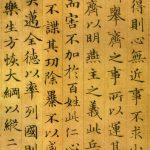 得則心無近事不求小
舉齊之事所以運其
齊以明燕主之義此兵
而害不加於百姓此仁心
不謀其功除暴不以威
矣邁全德以率列國則
樂生方恢大綱以縱二